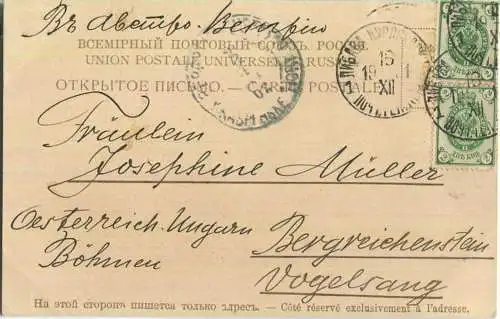 Въ Австро-Венгрію
ВСЕМІРНЫЙ ПОЧТОВЫЙ СОЮЗЪ. РОССІЯ
UNION POSTALE UNIVERSELLE RUSSIE
ОТКРЫТОЕ ПИСЬМО. — CARTE POSTALE
ЛИБАВА КУРЛ
15
19 1
XII
Fräulein
Josephine Müller
Oesterreich-Ungarn
Böhmen
Bergreichenstein
Vogelsang
На этой сторонѣ пишется только адресъ. — Côté réservé exclusivement à l'adresse.